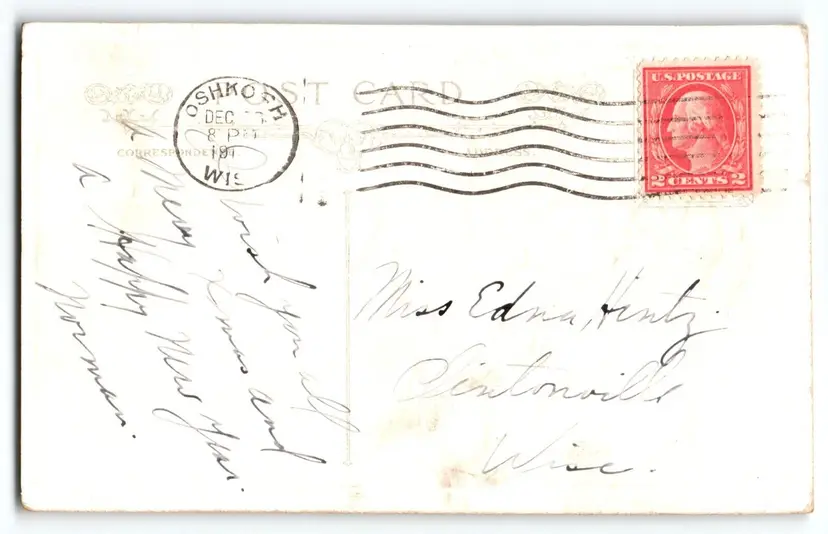 POST CARD
OSHKOSH
DEC
8 PM
191
WIS
CORRESPONDENCE
ADDRESS
U.S. POSTAGE
2 CENTS 2
I wish you all
a Merry Xmas and
a Happy New Year.
Norman.
Miss Edna Hintz.
Clintonville
Wisc.